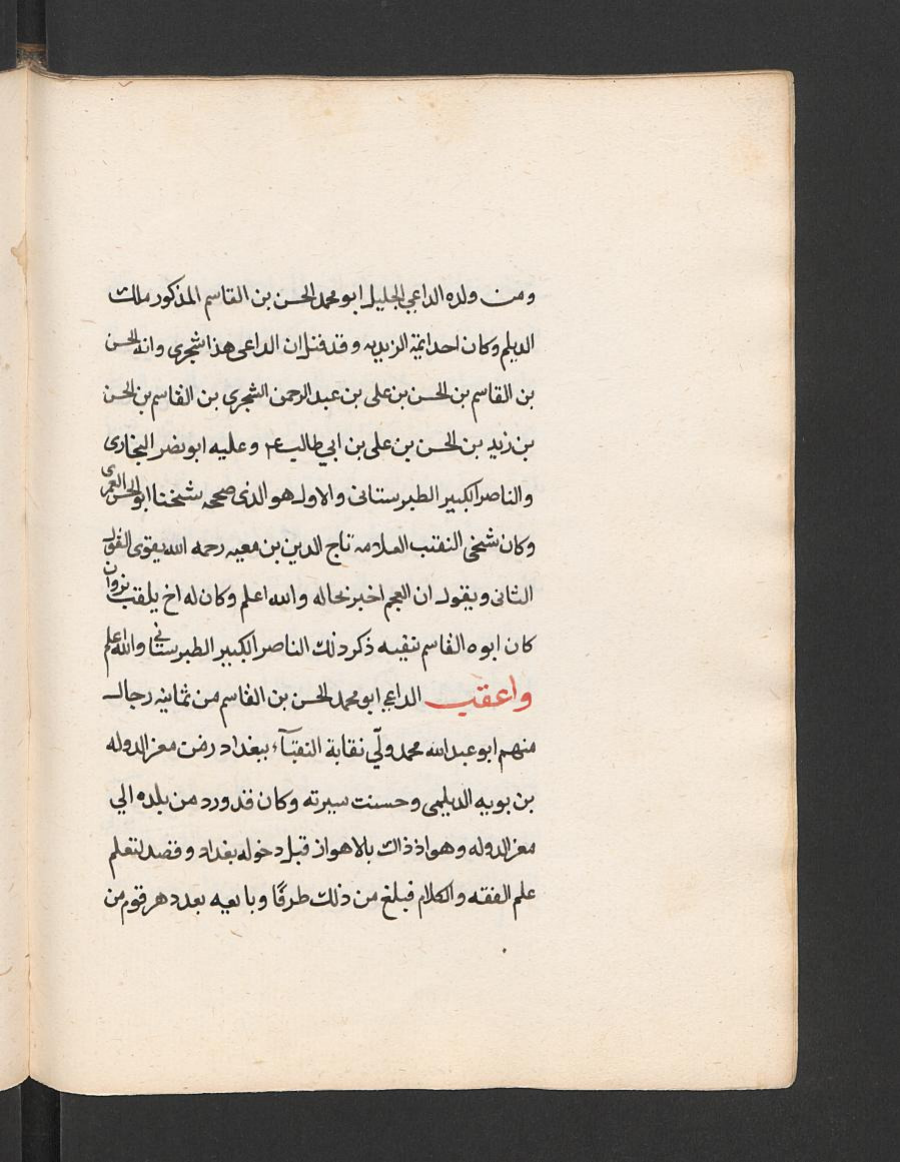 ومن ولده الداعي الجليل ابو محمد الحسن بن القاسم المذكور ملك
الديلم وكان احد ايمة الزيديه وقد قتل ان الداعى هذا شجرى وانه الحسن
بن القاسم بن الحسن بن على بن عبد الرحمن الشجرى بن القاسم بن الحسن
بن زيد بن الحسن بن على بن ابي طالب عم وعليه ابو نصر البخارى
والناصر الكبير الطبرستانى والاول هو الذى صححه شيخنا ابو الحسن العمرى
وكان شيخى النقيب العلامه تاج الدين بن معيه رحمه الله يقوى القول
الثانى ويقول ان العجم اخبر بحاله والله اعلم وكان له اخ يلقب بزوان
كان ابوه القاسم نقيبه ذكر ذلك الناصر الكبير الطبرستاني والله اعلم
واعقب الداعي ابو محمد الحسن بن القاسم من ثمانيه رجال
منهم ابو عبد الله محمد ولّي نقابة النقبآء ببغداد رمن معز الدوله
بن بويه الديلمى وحسنت سيرته وكان قد ورد من بلده الي
معز الدوله وهو اذ ذاك بالاهواز قبل دخوله بغداد وقصد لتعلم
علم الفقه والكلام فبلغ من ذلك طرفًا وبايعيه بعد دهر قوم من